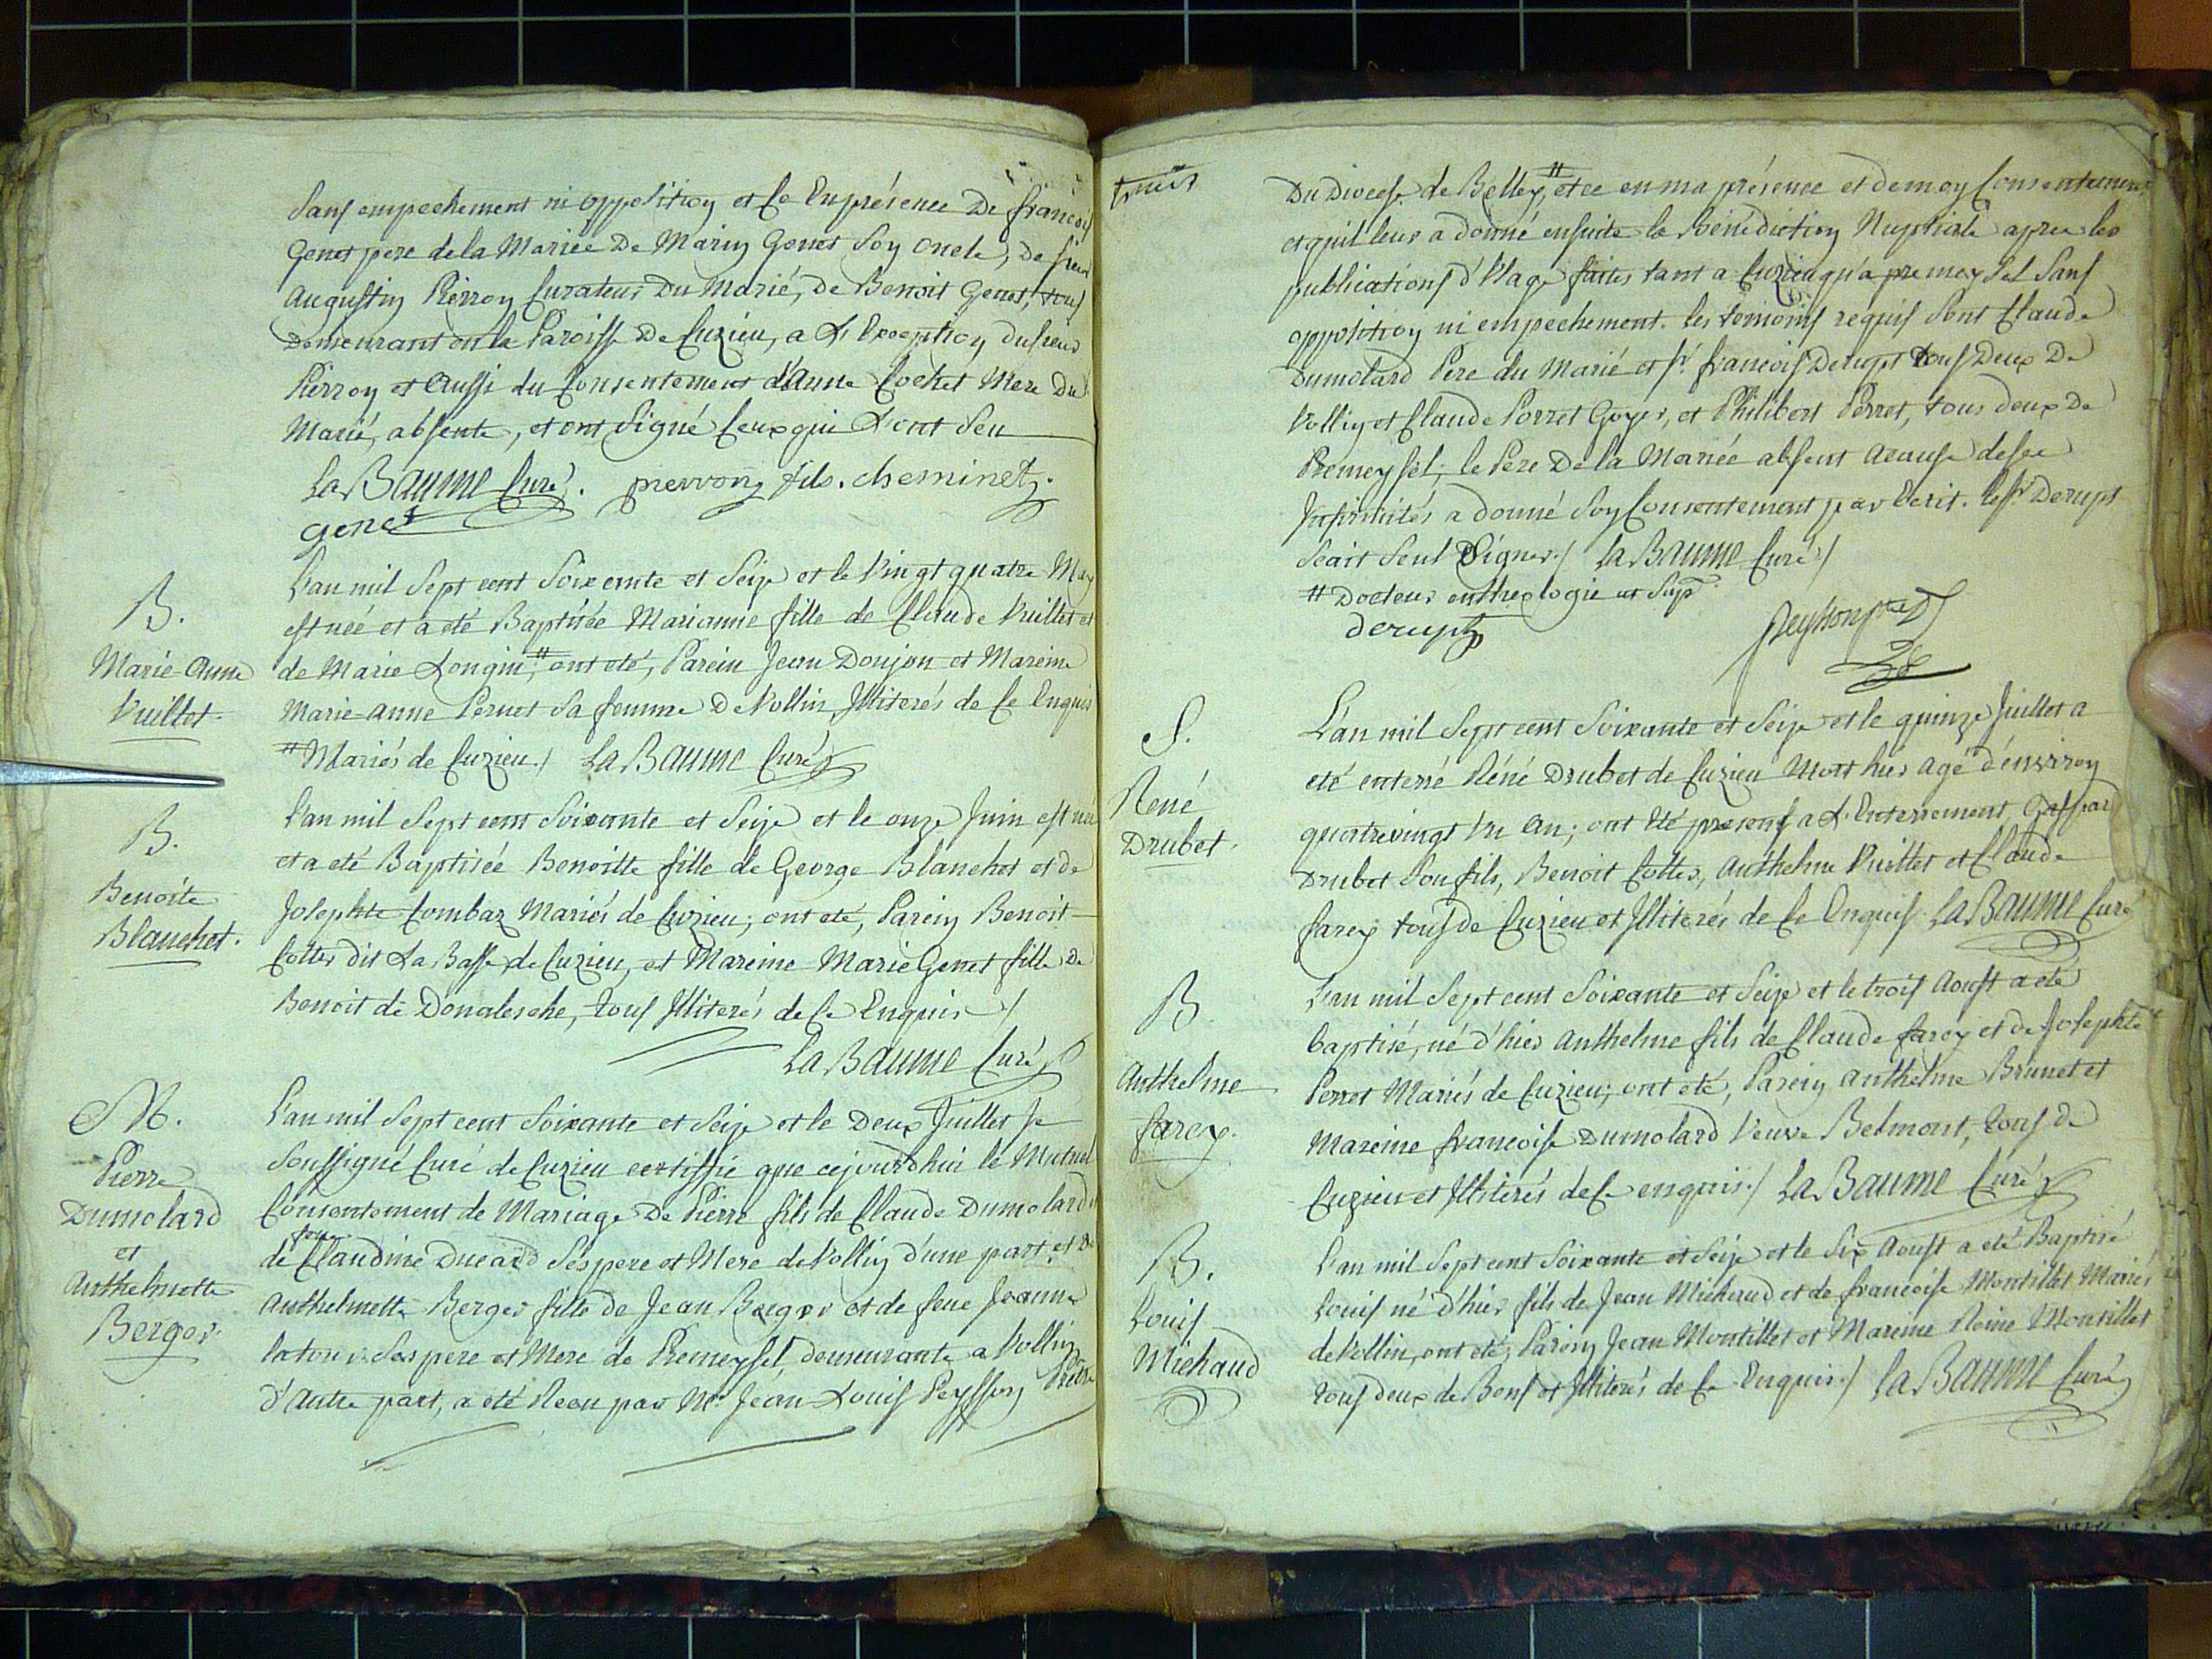 Sans empechement ni opposition et Ce En présence De francois
Genet pere de la Mariée De Marin Genet Son oncle, De sieur
Augustin Pierron Curateur Du Marié, de Benoit Genet, tous
Demeurant en la Paroisse De Cuzieu, a L'Exception du sieur
Pierron et Aussi du Consentement d'Anne Cochet Mere Du
Marié, absente, et ont Signé Ceux qui L'ont Seu
La Baume Curé. pierron fils. cheminet.
genet
B.
Marie-Anne
Vuillet.
L'an mil Sept cent Soixemte et Seize et le Vingt quatre May
est née et a eté Baptisée Marianne fille de Claude Vuillet et
de Marie Longin,# ont eté, Parein Jean Donjon et Mareine
Marie-anne Pernet Sa femme De Vollin Illiterés de Ce Enquis
# Mariés de Cuzieu./ La Baume Curé
B.
Benoite
Blanchet.
L'an mil Sept cent Soixante et Seize et le onze Juin est née
et a eté Baptisée Benoitte fille de George Blanchet et de
Josephte Combaz Mariés de Cuzieu; ont eté, Parein Benoit
Cottes dit La Basse de Cuzieu, et Mareine Marie Genet fille De
Benoit de Donalesche, tous Illiterés de Ce Enquis /
La Baume Curé
M.
Pierre
Dumolard
et
Anthelmette
Berger.
L'an mil Sept cent Soixante et Seize et le Deux Juillet Je
Soussigné Curé de Cuzieu certiffie que cejourd'hui le Mutuel
Consentement de Mariage De Pierre fils de Claude Dumolard et
feue
de Claudine Ducard Ses pere et Mere de Vollin d'une part, et De
Anthelmette Berger fille de Jean Berger et de feue Jeanne
Ses pere et Mere de Premeysel demeurante a Vollin
d'Autre part, a eté Receu par Mr. Jean-Louis Peysson Prêtre
Du Diocese de Belley,# et ce en ma présence et de moy Consentement
et qu'il leur a donné ensuite la Bénédiction Nuptiale apres les
publications d'Usage faites tant a Cuzieu qu'a premeysel Sans
opposition ni empechement. les temoins requis Sont Claude
Dumolard Pere du Marié et Sr. francois Derupt tous Deux De
Vollin et Claude Porret Goyer, et Philibert Perret, tous deux De
Premeysel; le Pere De la Mariée absent acause de ses
Infirmités a donné Son Consentement par Ecrit. le Sr. Derupt
Scait Seul Signer./ La Baume Curé/
# Docteur en theologie
derupt Peysson
S.
René
Drubet.
L'an mil Sept cent Soixante et Seize et le quinze Juillet a
eté enterré Réné Drubet de Cuzieu Mort hier agé d'environ
quatrevingt Un An; ont été presens a L'Enterrement, Gaspard
Drubet Son fils, Benoit Cottes, Anthelme Vuillet et Claude
farey tous de Cuzieu et Illiterés de Ce Enquis. La Baume Curé
B.
Anthelme
farey.
L'an mil Sept cent Soixante et Seize et le trois Aoust a eté
baptisé, né d'hier Anthelme fils de Claude farey et de Josephte
Perret Mariés de Cuzieu; ont eté, Parein Anthelme Brunet et
Mareine francoise Dumolard Veuve Belmont, tous De
Cuzieu et Illiterés de Ce enquis./ La Baume Curé
B.
Louis
Michaud
L'an mil Sept cent Soixante et Seize et le Six Aoust a eté Baptisé
Louis né d'hier fils de Jean Michaud et de francoise Montillet Mariés
de Vollin, ont eté, Parein Jean Montillet et Mareine Reine Montillet
tous deux de Bons et Illiterés de Ce Enquis./ La Baume Curé